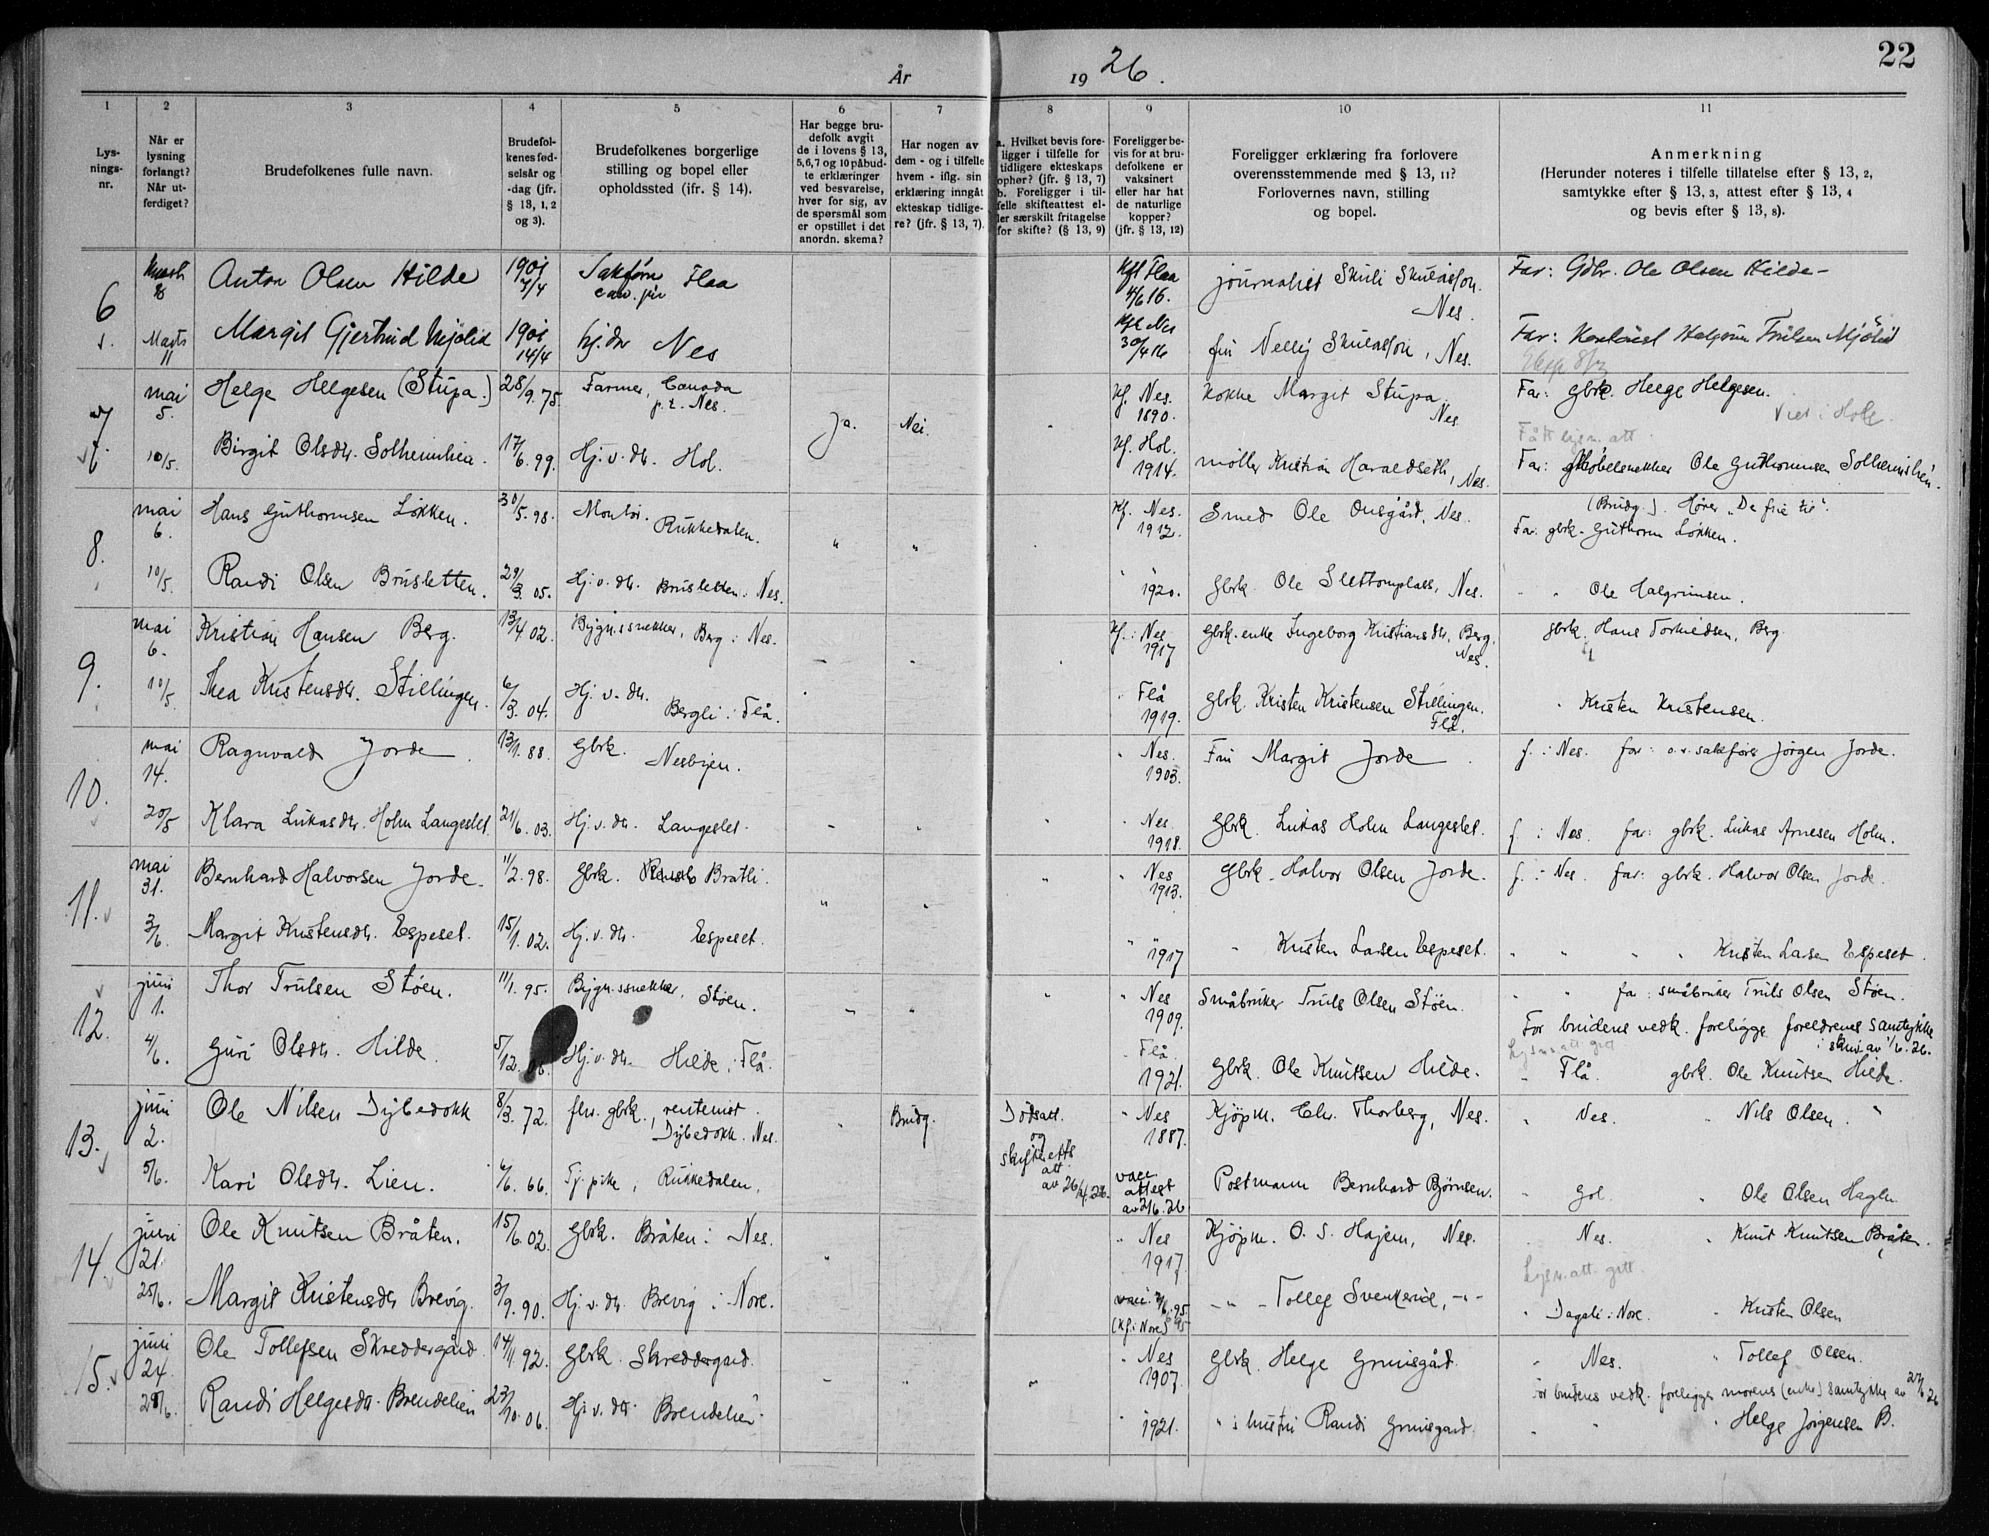 22
År 1926.
1 2 3 4 5 6 7 8 9 10 11
Lys-
nings-
nr.
Når er
lysning
forlangt?
Når ut-
ferdiget?
Brudefolkenes fulle navn.
Brudefol-
kenes fød-
selsår og
-dag (jfr.
§ 13, 1, 2
og 3).
Brudefolkenes borgerlige
stilling og bopel eller
opholdssted (ifr. § 14).
Har begge bru-
defolk avgit
de i lovens § 13,
5, 6, 7 og 10 påbud-
te erklæringer
ved besvarelse,
hver for sig, av
de spørsmål som
er opstillet i det
anordn. skema?
Har nogen av
dem - og i tilfelle
hvem - iflg. sin
erklæring inngåt
ekteskap tidlige-
re? (jfr. § 13, 7).
a. Hvilket bevis fore-
ligger i tilfelle for
tidligere ekteskaps
ophør? (jfr. § 13, 7)
b. Foreligger i til-
felle skifteattest el-
ler særskilt fritagelse
for skifte? (§ 13, 9)
Foreligger be-
vis for at bru-
defolkene er
vaksinert
eller har hat
de naturlige
kopper?
(jfr. § 13, 12)
Foreligger erklæring fra forlovere
overensstemmende med § 13, 11?
Forlovernes navn, stilling
og bopel.
Anmerkning
(Herunder noteres i tilfelle tillatelse efter § 13, 2,
samtykke efter § 13, 3, attest efter § 13, 4
og bevis efter § 13, 8).
6 Marts 8 Anton Olsen Hilde 1901 4/4 Sakfører cand. jur Flaa Kfl Flaa 4/6 16. journalist Skuli Skulasson. Nes. Far: Gdbr. Ole Olsen Hilde -
Marts 11 Margit Gjertrud Mjølid 1901 14/4 hj. dtr Nes Kfl Nes 30/4 16 fru Nelly Skulasson, Nes. Far: Halgrim Trulsen Mjølid
7. mai 5. Helge Helgesen (Stupa.) 28/9. 75. Farmer, Canada p.t. Nes. Ja. Nei. Kf. Nes. 1890. Kokke Margit Stupa Nes Far: gbrk. Helge Helgesen.
Viet i Hole.
Fått lysn. att.
10/5. Birgit Olsdtr. Solheimhia. 17/6. 99. Hj. v. dtr. Hol. Kf. Hol. 1914. møller Kristian Haraldseth, Nes. Far: Møbelsnekker Ole Guthormsen Solheimshien.
8. mai 6. Hans Guthormsen Løkken. 30/5. 98. Montør. Rukkedalen. " " . Kf. Nes. 1912. Smed Ole Onsgård, Nes. (Brudg.). Hører "De frie til".
Far: gbrk. Guthorm Løkken.
10/5. Randi Olsen Brusletten. 29/3. 05. Hj. v. dtr. Brusletten: Nes. " 1920. Gbrk. Ole Slettemplass, Nes. " " Ole Halgrimsen.
9. mai 6. Kristian Hansen Berg. 13/4 02. Bygn.ssnekker, Berg: Nes. Kf.: Nes 1917 Gbrk. enke Ingeborg Kristiansdtr. Berg. Nes. gbrk. Hans Torkildsen, Berg
10/5. Thea Kristensdtr. Stillingen. 6/3. 04. Hj. v. dtr. Bergli: Flå. " Flå 1919. Gbrk. Kristen Kristensen Stillingen. Flå. " Kristen Kristensen.
10. mai 14. Ragnvald Jorde 13/1. 88. Gbrk. Nesbyen. " Nes. 1903. Fru Margit Jorde f. : Nes. far: o.r. sakfører Jørgen Jorde.
20/5 Klara Lukasdtr. Holm Langeslet. 21/6. 03. Hj. v. dtr. Langeslet. " Nes 1918. Gbrk. Lukas Holm Langeslet. f. : Nes. far: gbrk. Lukas Arnesen Holm.
11. mai 31. Bernhard Halvorsen Jorde. 11/2. 98. Gbrk. Bratli. " " " " Nes 1913. Gbrk. Halvor Olsen Jorde. f. : Nes. far: gbrk. Halvor Olsen Jorde.
3/6. Margit Kristensdtr. Espeset. 15/1. 02. Hj. v. dtr. Espeset. " " 1917 " Kristen Larsen Espeset. " " " " Kristen Larsen Espeset.
12. juni 1. Thor Trulsen Støen. 11/1. 95. Bygn.ssnekker, Støen. " " " " Nes 1909. Småbruker Truls Olsen Støen. " " far: småbruker Truls Olsen Støen.
For brudens vedk. foreligge foreldrenes samtykke
i skriv av 1/6. 26.
Lysn. att. gitt
4/6. Guri Olsdtr. Hilde. 5/12. Hj. v. dtr. Hilde: Flå. " Flå 1921. Gbrk. Ole Knutsen Hilde. " Flå. gbrk. Ole Knutsen Hilde.
13. juni 2. Ole Nilsen Dybedokk 8/3. 72. fhv. gbrk., rentenist. Dybedokk. Nes. " Brudg. Dødsatt. og skifteretts att. av 26/4. 26. " Nes 1887. Kjøpm. Chr. Thorberg, Nes. " Nes. " Nils Olsen "
5/6. Kari Olsdtr. Lien. 4/6. 66. Tj. pike, Rukkedalen. vacc. attest av 2/6. 26 Postmann Bernhard Bjørnsen. " Gol. " Ole Olsen Hagln
14. juni 21. Ole Knutsen Bråten. 15/6. 02. Gbrk. Bråten: Nes. " " Nes 1917. Kjøpm. O. S. Hajem, Nes. " Nes. " Knut Knutsen Bråten.
Lysn. att. gitt.
25/6. Margit Kristensdtr Brevig. 3/9. 90. Hj. v. dtr. Brevig i Nore. vacc. 7/6. 95. (Kf. i Nore) - " - Tollef Svenkerud, - " - " Dagali: Nore. " Kristen Olsen
15. juni 24. Ole Tollefsen Skreddergård. 14/1. 92. Gbrk. Skreddergård. " " " " Nes 1907. Gbrk. Helge Grimsgård. " Nes. " Tollef Olsen.
For brudens vedk. foreligger morens (enke) samtykke av 27/6 26
28/6. Randi Helgesdtr. Brendelien 23/10. 06. Hj. v. dtr. Brendelien. " 1921. " s hustru Randi Grimsgard. " " Helge Jørgensen B.